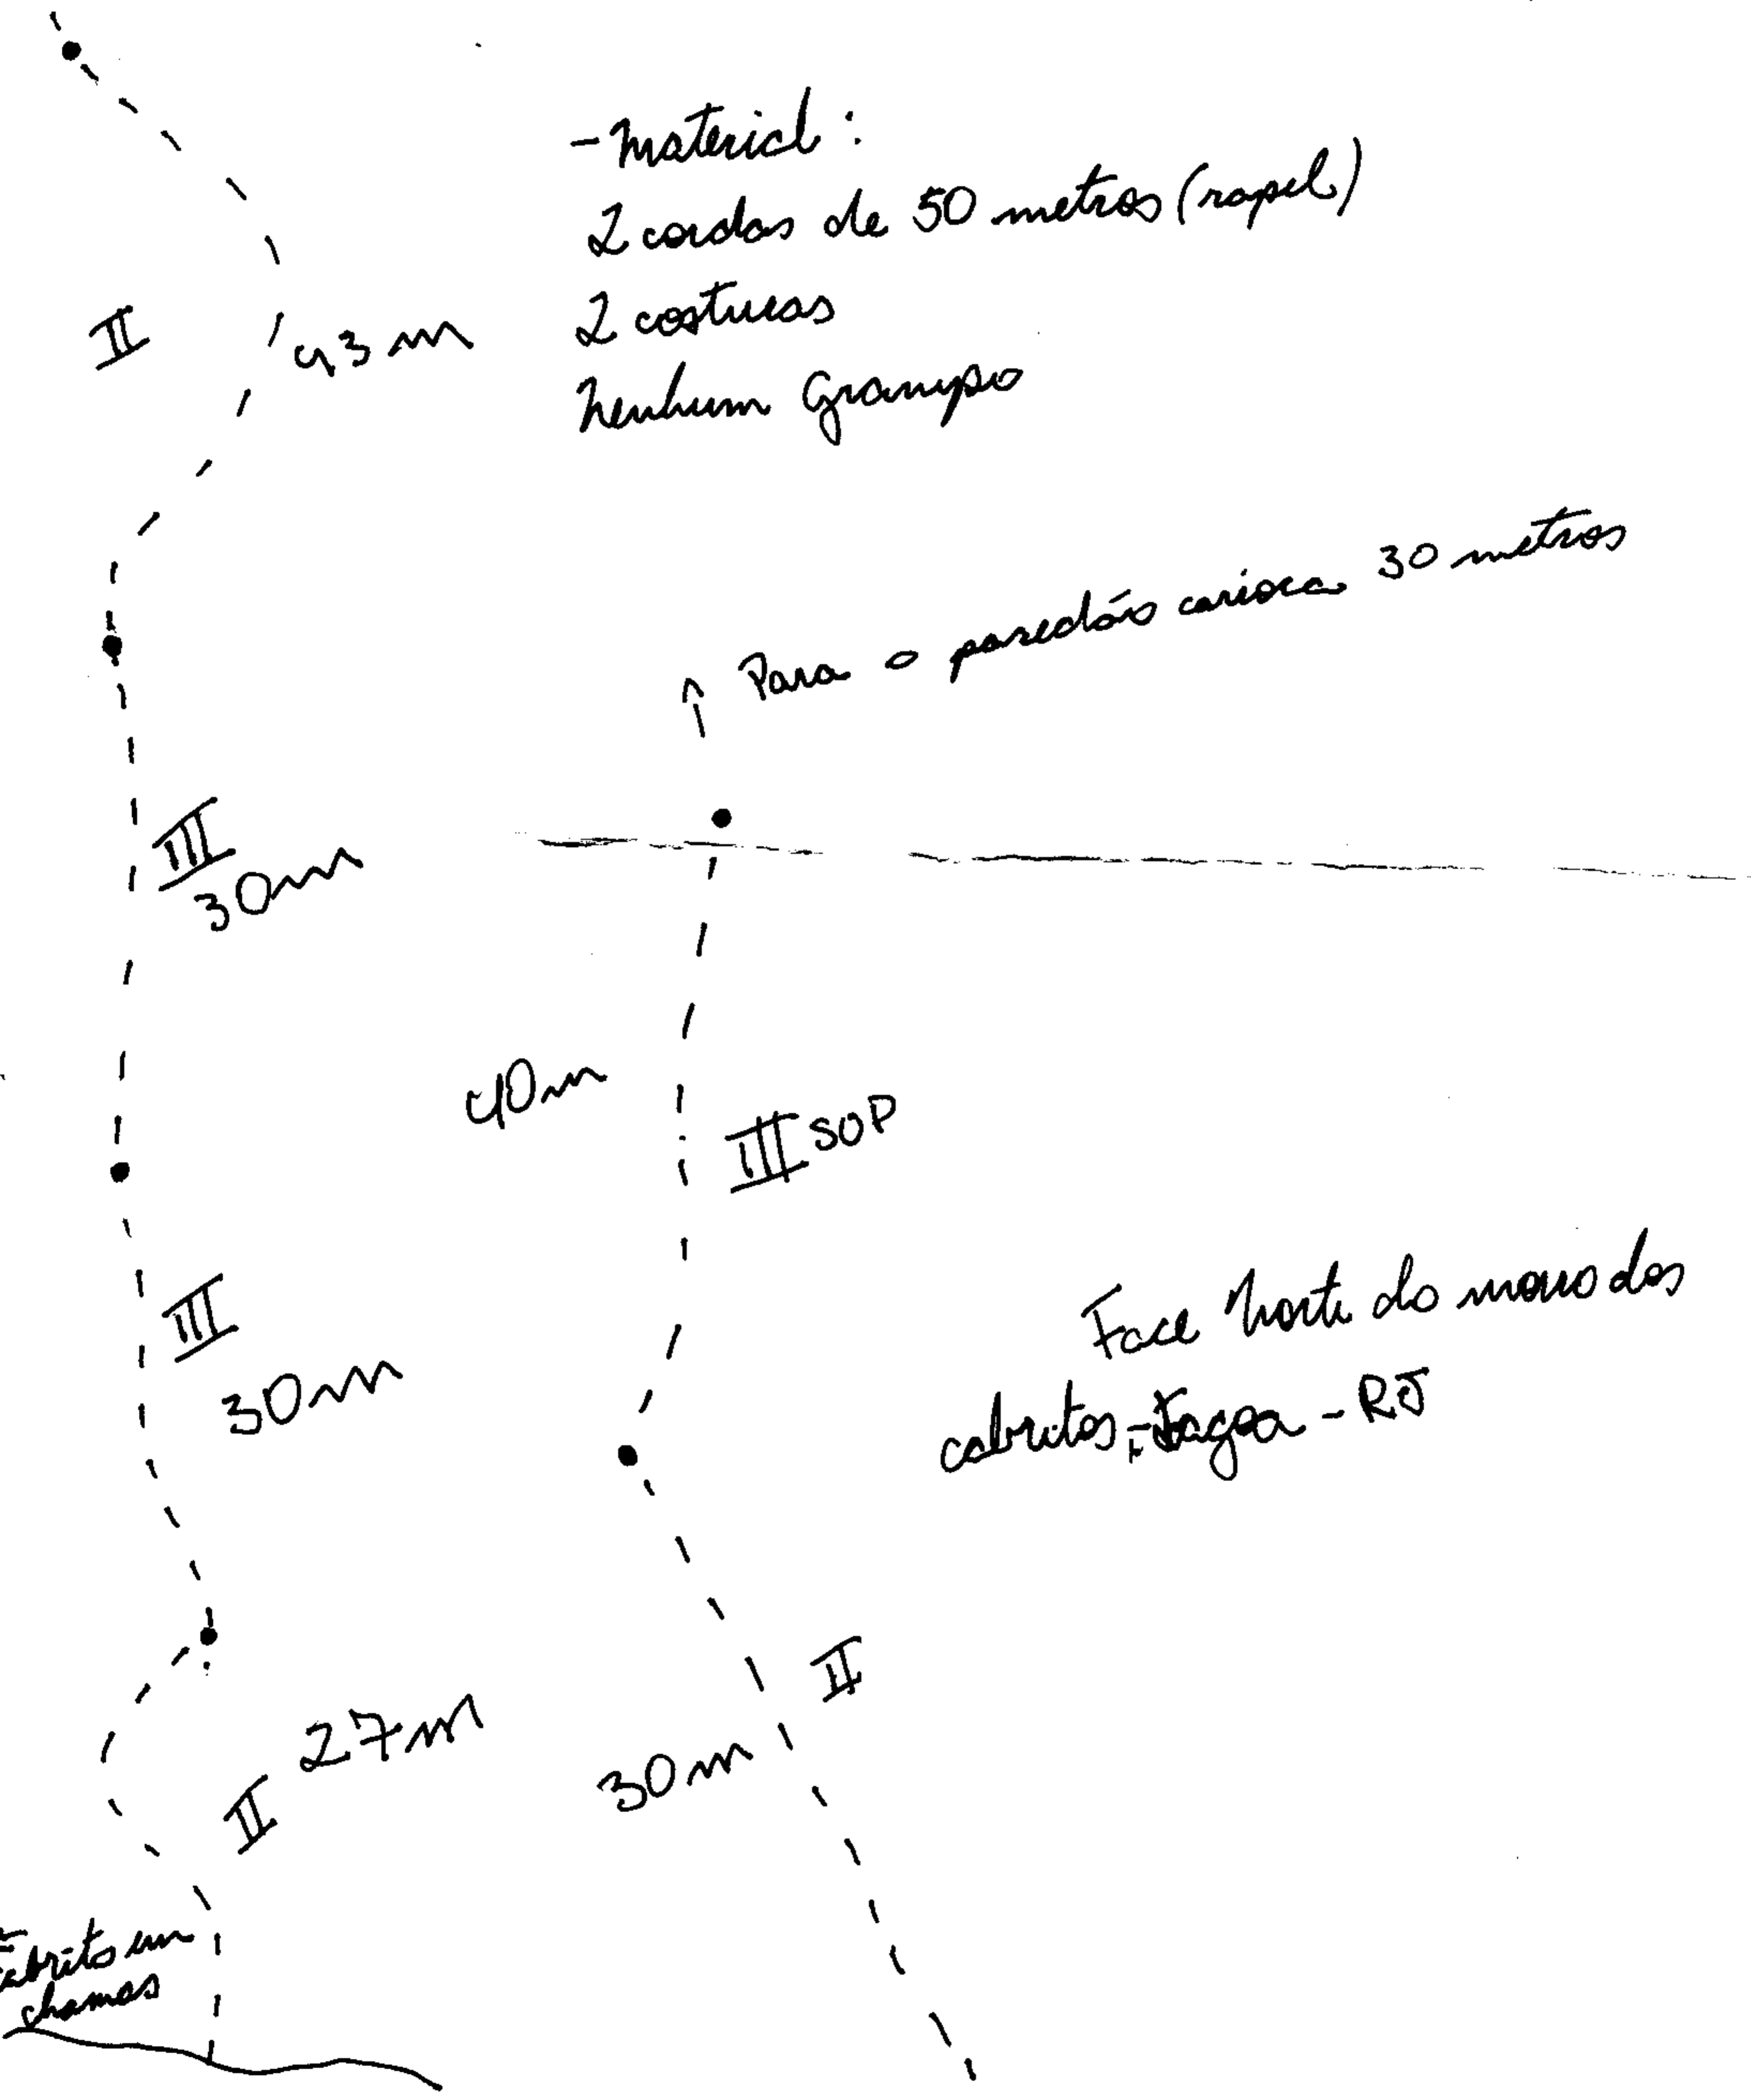 - Material:
2 cordas de 50 metros (rapel)
2 costuras
Nenhum Grampo
II
43 m
Para o paredão carioca 30 metros
III
30m
40m
III SOP
III
30m
Face Norte do morro dos
cabritos - Lagoa - RJ
II
30m
27m
II
em
chamas